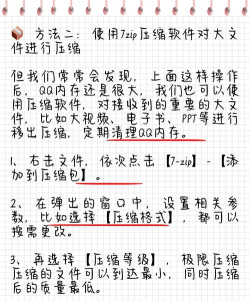 方法二：使用7zip压缩软件对大文
件进行压缩
但我们常常会发现，上面这样操作
后，QQ内存还是很大，我们也可以使
用压缩软件，对接收到的重要的大文
件，比如大视频、电子书、PPT等进行
移出压缩，定期清理QQ内存。
1、右击文件，依次点击【7-zip】-【添
加到压缩包】。
2、在弹出的窗口中，设置相关参
数，比如选择【压缩格式】，都可以
按需更改。
3、再选择【压缩等级】，极限压缩
压缩的文件可以到达最小，同时压缩
后的质量最低。